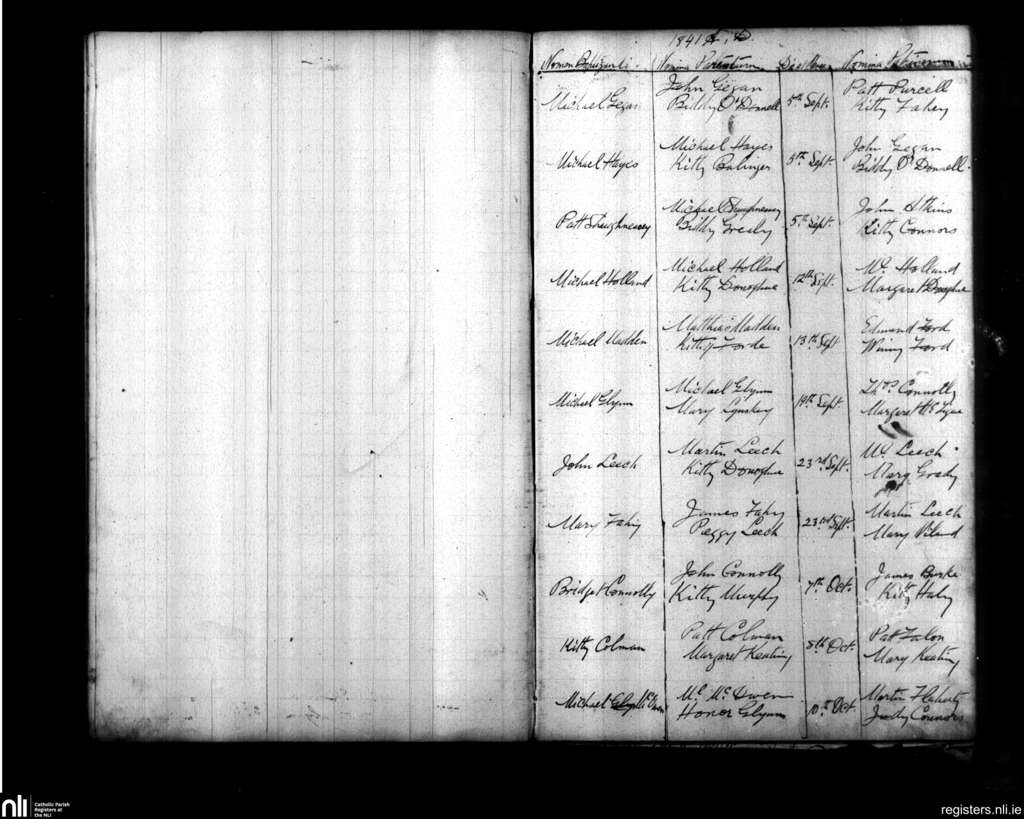 1841 A. D.
Nomen Baptizati. Nomina Parentum Dies Mens. Nomina Patrinorum
John Gegan Patt Purcell
Michael Gegan Biddy O'Donnell 5th Sept. Kitty Fahey
Michael Hayes John Gegan
Michael Hayes Kitty Balinger 5th Sept. Biddy O'Donnell
Michael Shaughnessy John Atkins
Patt Shaughnessy Biddy Grealy 5th Sept. Kitty Connors
Michael Holland Ml. Holland
Michael Holland Kitty Donoghue 12th Sept. Margaret Donoghue
Matthias Madden Edmund Ford
Michael Madden Kitty Forde 13th Sept Winny Ford
Michael Glynn Thos Connolly
Michael Glynn Mary Lynskey 19th Sept. Margaret
Martin Leech Ml. Leech
John Leech Kitty Donoghue 23rd Sept. Mary Grady
James Fahy Martin Leech
Mary Fahy Peggy Leech 23rd Sept. Mary
John Connolly James Burke
Bridget Connolly Kitty Murphy 7th Oct. Kitty
Patt Colman Patt
Kitty Colman Margaret Keating 8th Oct. Mary Keating
Ml. Mc Owen Martin Flaherty
Michael Mc Owen Honor Glynn 10th Oct. Judy Connors
nli
Catholic Parish
Registers at
the NLI
registers.nli.ie